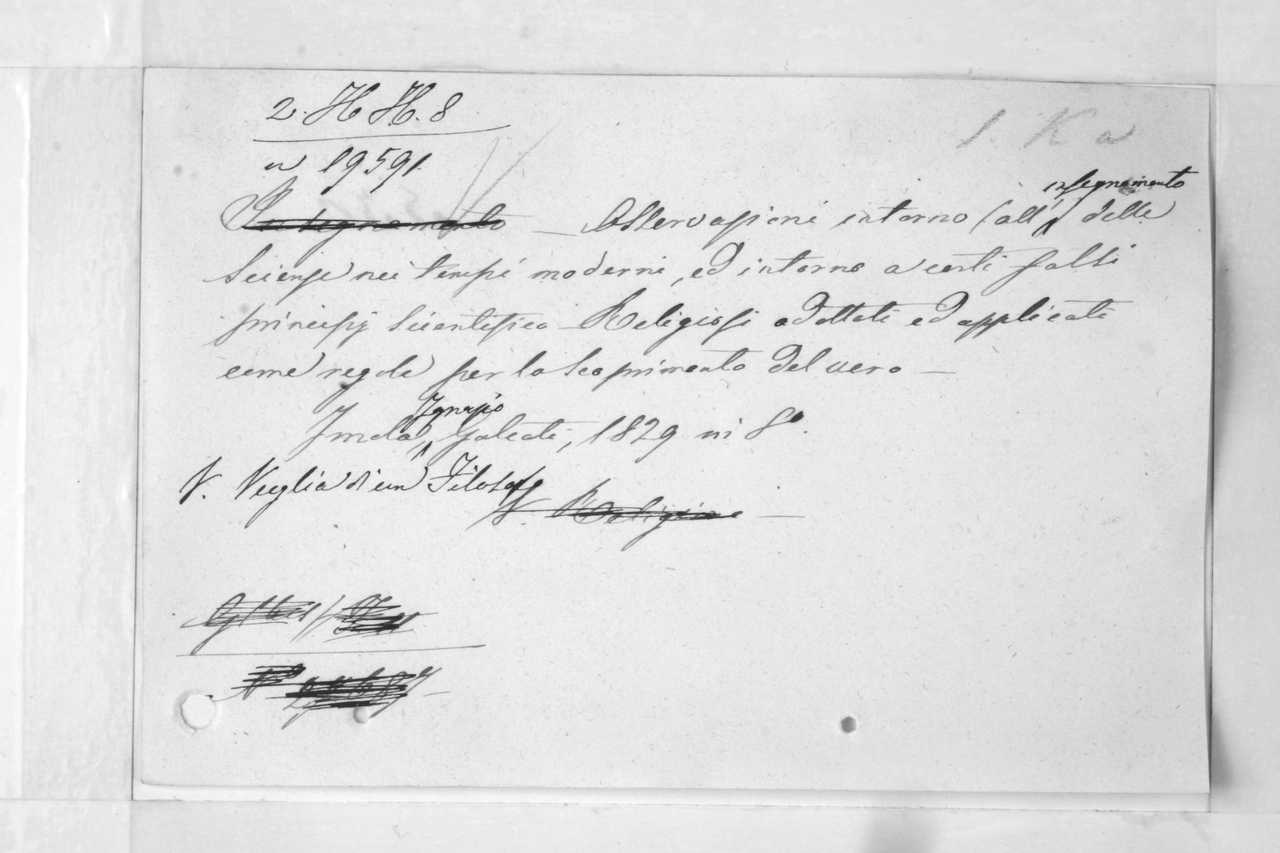 2. H H. 8
1. K a
n 19591
Insegnamento — Osservazioni intorno (all' insegnamento delle
Scienze nei tempi moderni, ed intorno a certi falsi
principj scientifico-Religiosi adottati ed applicati
come regole per lo scoprimento del vero —
Imola, Ignazio Galeati, 1829 in 8°.
V. Veglia di un Filosofo
V. Religione —